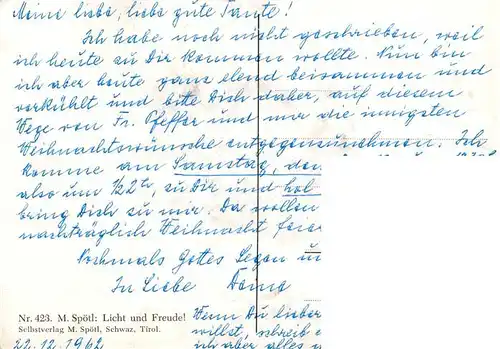 Meine liebe, liebe gute Tante!
Ich habe noch nicht geschrieben, weil
ich heute zu Dir kommen wollte. Nun bin
ich aber heute ganz elend beisammen und
verkühlt und bitte Dich daher, auf diesem
Wege von Fr. Pfeffer und mir die innigsten
Weihnachtswünsche entgegenzunehmen. Ich
komme am Samstag, den
also um 1/2 2h, zu Dir und hol
bring Dich zu mir. Da wollen
nachträglich Weihnacht feiern
Nochmals Gottes Segen u
In Liebe
Nr. 423. M. Spötl: Licht und Freude!
Selbstverlag M. Spötl, Schwaz, Tirol.
22.12.1962
Wenn Du lieber
willst, schreib
ich aber alles